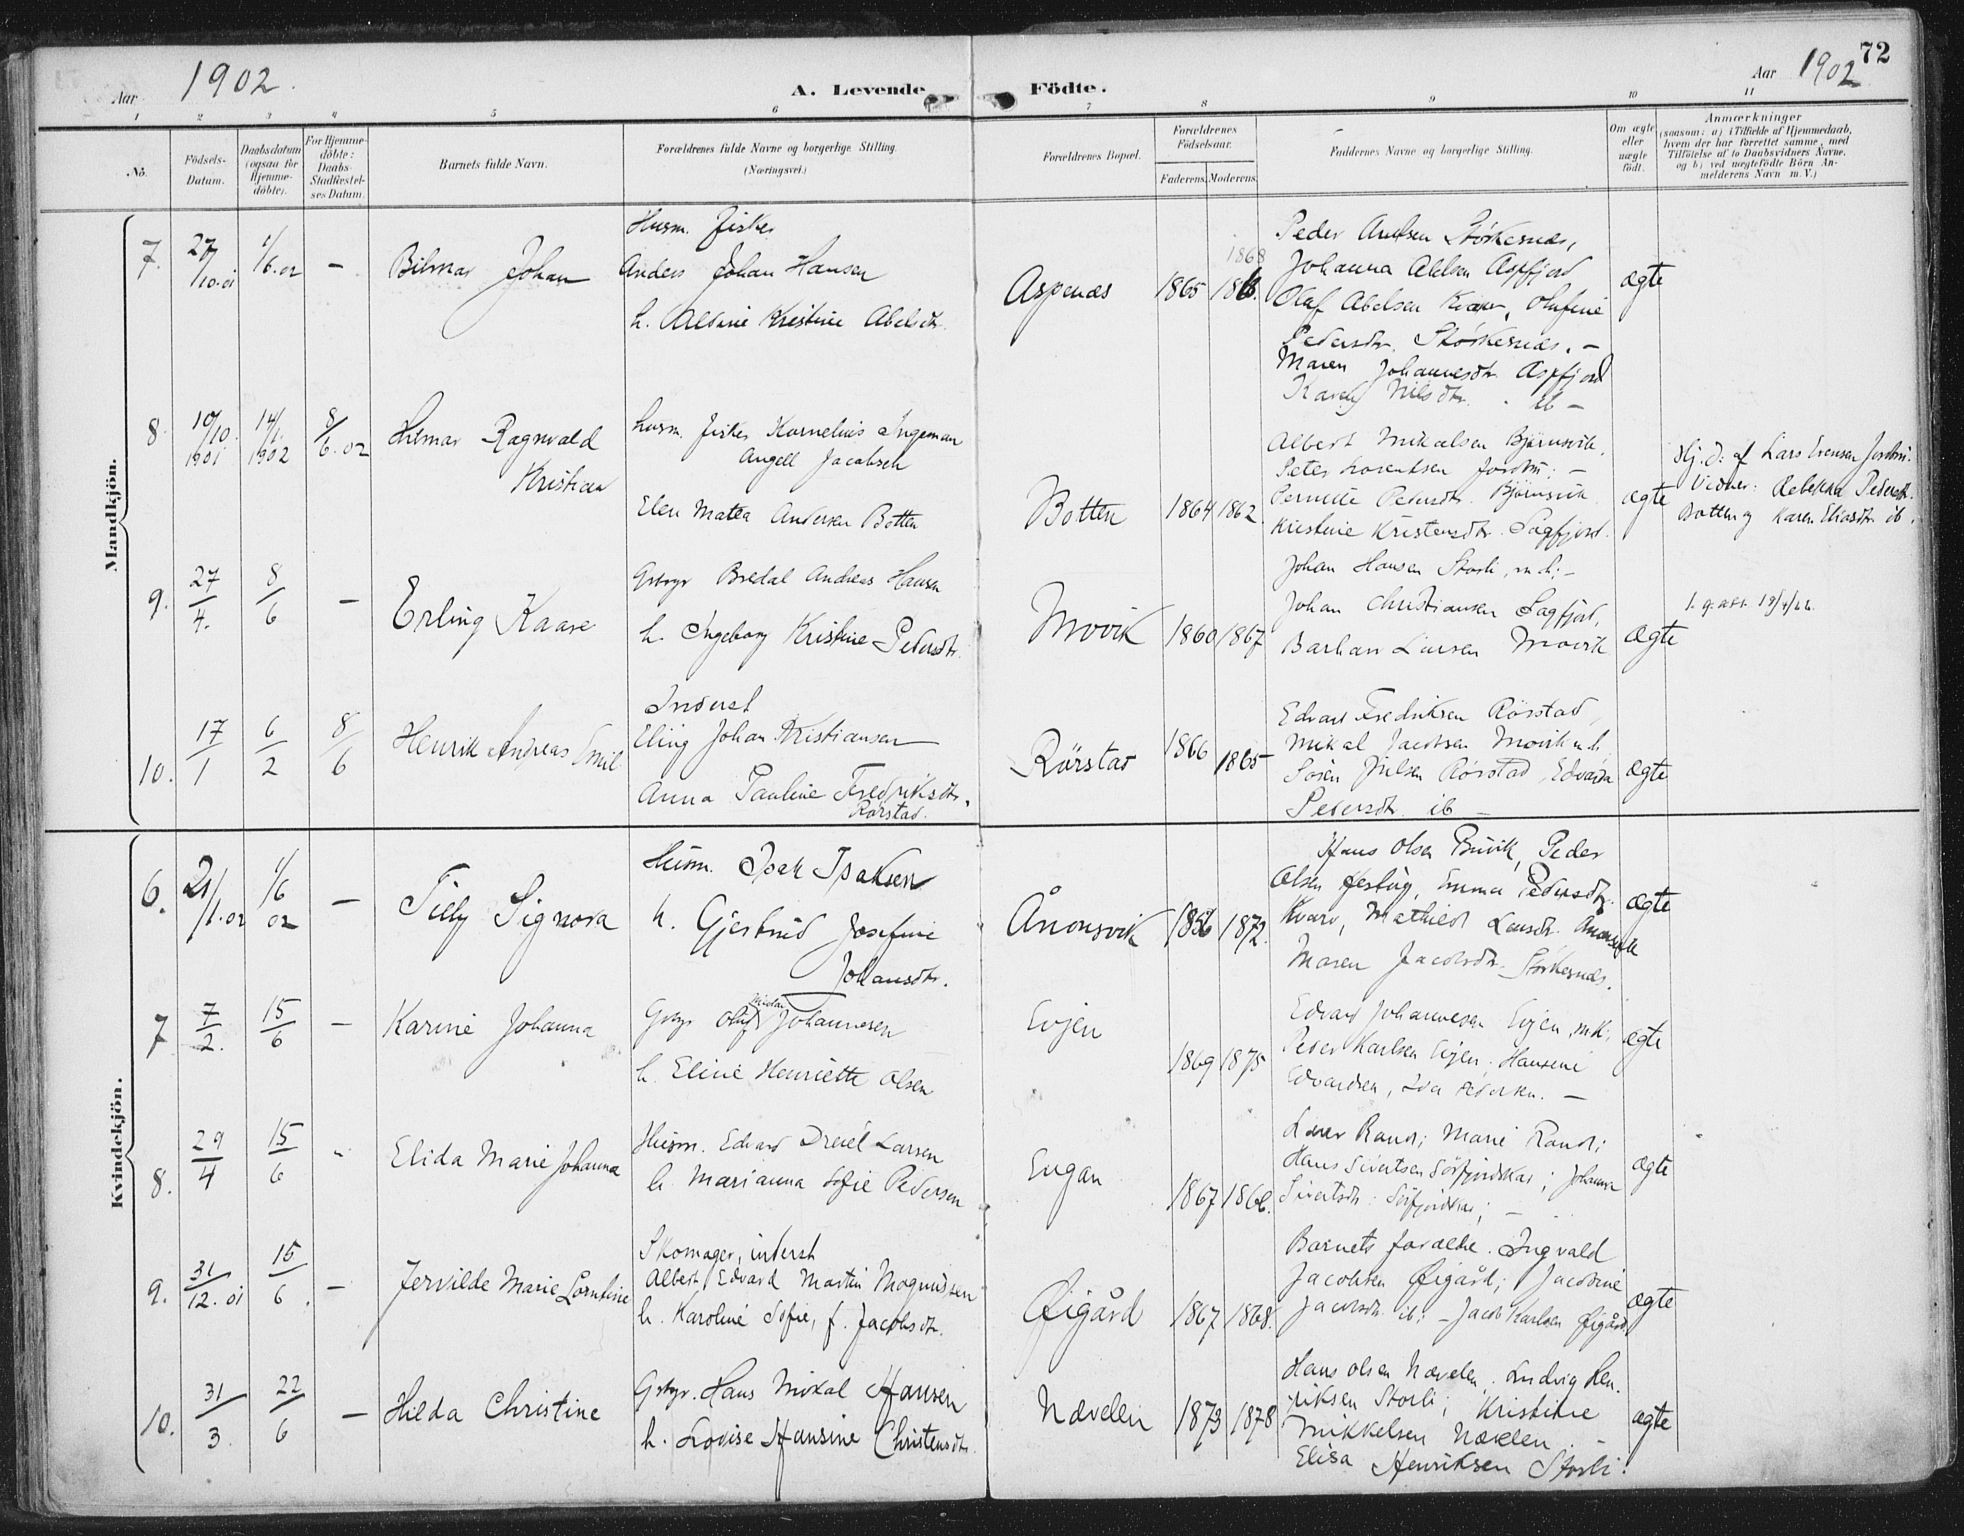 72
Aar 1902. A. Levende Födte. Aar 1902
1 2 3 4 5 6 7 8 9 10 11
No.
Födsels-
Datum.
Daabsdatum
(ogsaa for
Hjemme-
döbte).
For Hjemme-
döbte:
Daabs-
Stadfestel-
ses Datum.
Barnets fulde Navn.
Forældrenes fulde Navne og borgerlige Stilling.
(Næringsvei.)
Forældrenes Bopæl.
Forældrenes
Födselsaar.
Faderens. Moderens.
Faddernes Navne og borgerlige Stilling.
Om ægte
eller
uægte
födt.
Anmærkninger
(saasom: a) i Tilfælde af Hjemmedaab,
hvem der har forrettet samme, med
Tilföielse af to Daabsvidners Navne,
og b) ved uægtefödte Börn An-
melderens Navn m. V.)
Mandkjön.
7. 27/10.01 1/6.02 – Bilmar Johan
Husm. fisker
Anders Johan Hansen
h. Aldine Kristine Abelsdtr.
Aspenæs 1865 1868
Peder Antsen Störkesnæs,
Johanna Abelsen Aspfjord
Olaf Abelsen Kvarv, Olufine
Pedersdtr. Störkesnæs. –
Maren Johannesdtr Aspfjord
Karen Nilsdtr. ib –
ægte
8. 10/10. 1901 14/1. 1902 8/6.02 Hilmar Ragnvald
Kristian
husm. fisker Kornelius Ingeman
Angell Jacobsen
Elen Matea Andersen Botten
Botten 1864 1862.
Albert Mikalsen Björnsvik.
Peter Lorentsen
Pernille Pedersdtr. Björnsvik
Kristine Kristensdtr. Sagfjord.
ægte
Hj. d. af Lars Evensen
Vidner: Rebekka Pedersdtr.
Botten og Karen Eliasdtr ib.
9. 27/4. 8/6 – Erling Kaare
Grbgr Bredal Andreas Hansen
h. Ingeborg Kristine Pedersdtr.
Movik 1860 1867
Johan Hansen Storli, m. h; –
Johan Christiansen Sagfjord,
Larsen Movik
ægte
10. 17/1 6/2 8/6 Henrik Andreas Emil
Inderst
Eling Johan Kristiansen
Anna Pauline Fredriksdtr.
Rörstad.
Rörstad 1866 1865
Edvard Fredriksen Rörstad,
Mikal Jacobsen Movik m. h.
Sören Rörstad, Edvarda
Pedersdtr ib –
ægte
Kvindekjön.
6. 21/1.02 1/6 02 – Tilly Signora
Husm. Isak Isaksen
h. Gjertrud Josefine
Johansdtr.
Ånonsvik 1856 1872.
Hans Olsen Buvik, Peder
Olsen Emma Pedersdtr.
Kvarv, Mathild Larsdtr. Ånonsvik
Maren Jacobsdtr. Störkesnæs.
ægte
7 7/2. 15/6 – Karine Johanna
Grbgr Oluf Nicolai Johannesen
h. Eline Henriette Olsen
Evjen 1869 1875
Edvard Johannesen Evjen, m. k.
Peder Karlsen Evjen, Hansine
Edvardsen, Ida Pedersen. –
ægte
8. 29/4 15/6 " Elida Marie Johanna
Husm. Edvard Larsen
h. Marianna Sofie Pedersen
Engan 1867 1866.
Marie
Hans Sivertsen Sörfjordskar; Johanna
Sivertsdtr. Sörfjordskar; –
ægte
9. 31/12.01 15/6. – Jervilde Marie
Skomager, inderst
Albert Edvard Martin Mognussen
h. Karoline Sofie, f. Jacobsdtr.
Øigård 1867 1868.
Barnets forældre. Ingvald
Jacobsen Øigård; Jacobine
Jacobsdtr. ib; – Jacob Karlsen Øigård.
ægte
10. 31/3. 22/6 – Hilda Christine
Grbgr. Hans Mikal Hansen
h. Lovise Hansine Christensdtr.
Nævelen 1873 1878
Hans Olsen Nævelen, Ludvig Hen-
riksen Storli; Kristine
Mikkelsen Nævelen. –
Elisa Henriksen Storli.
ægte